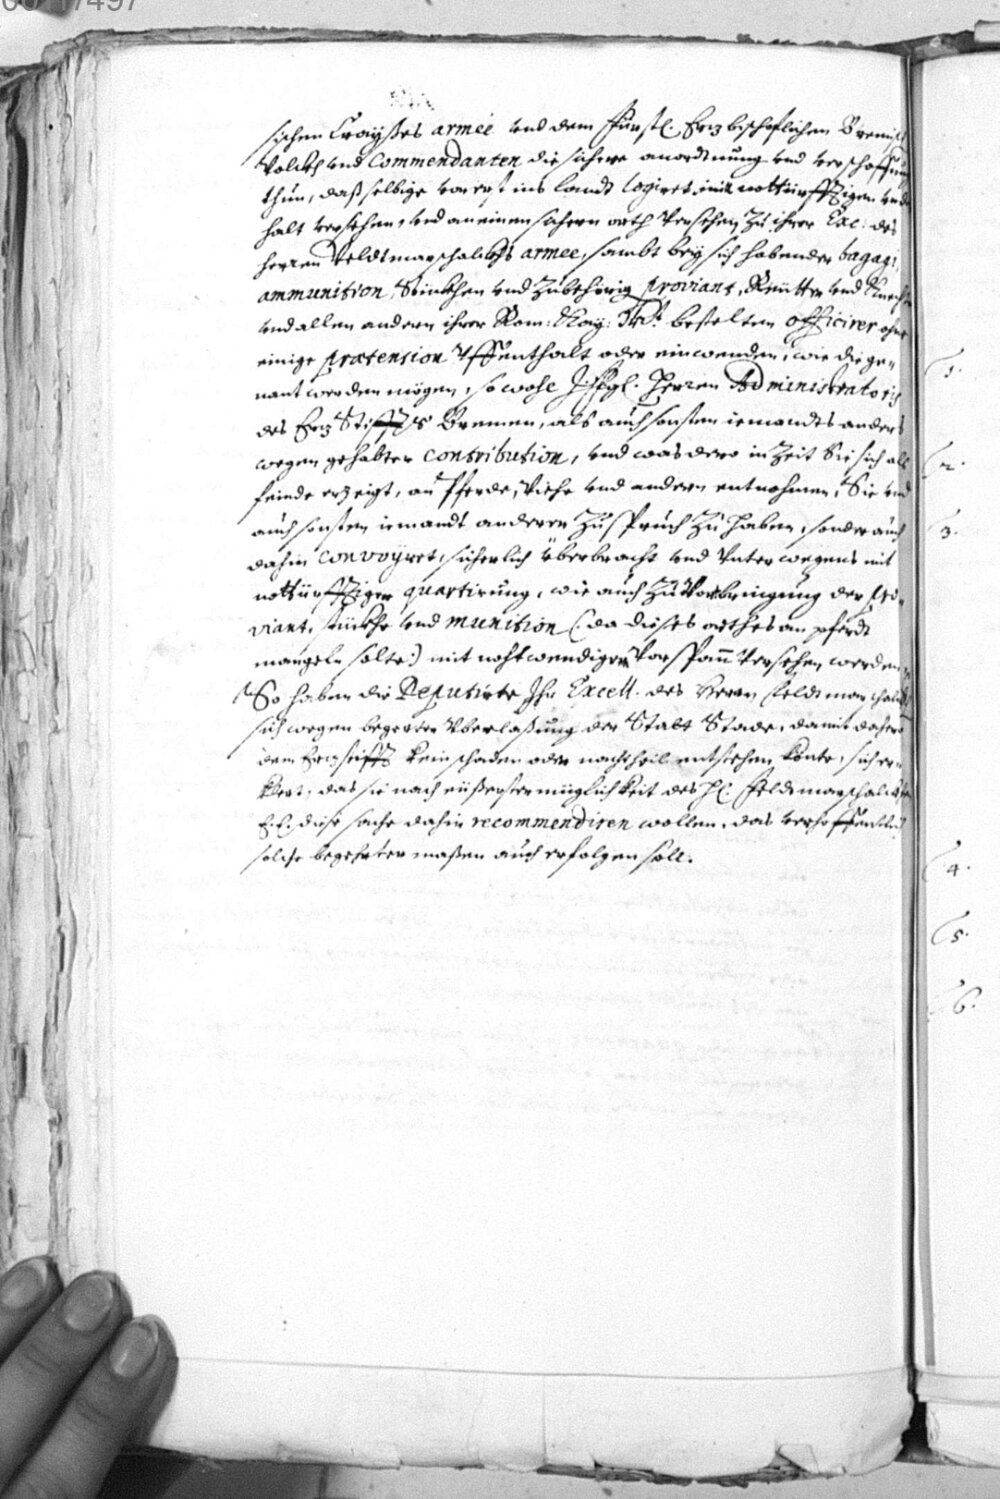 sischen Crayßes armée vnd dem Fürstl. Erzbischoflichen Bremisch
Volckh vnd Commendanten die sichere anordnung vnd verschaffung
thun, daß selbige vorerst ins landt logiret, mit nottürfftigen vnder
halt versehen, vnd an einen sichern orth versehen, zu ihrer Exc: des
herren Veldtmarschalckhs armee, sambt bey sich habender bagagi,
ammunition, Stückhen vnd Zubehörig proviant, Reütter vnd Knecht
vnd allen andern ihrer Röm: Kay: Mtt. bestelten officirer ohne
einige prætension Vffenthalt oder einwenden, wie die ge-
nant werden mögen, so wohl Herren Administratoris
des Erz Stiffts Bremen, als auch sonsten iemandts anders
wegen gehabter contribution, vnd was dero in Zeit Sie sich als
feinde erzeigt, an Pferde, Viehe vnd andern entnohmen, Sie vnd
auch sonsten iemandt anderen Zuspruch Zu haben, sonder auch
dahin convoyret, sicherlich überbracht vnd vnterwegens mit
nottürfftiger quartirung, wie auch Zu Vorbringung der pro-
viant, stückhe vnd munition (: da dieses orthes an pferdt
mangeln solte:) mit nohtwendigen Vorspann versehen werden
So haben die Deputirte Ihr Excell. des Herrn Feldtmarschalck
sich wegen begerter Vberlaßung der Statt Stade, damit dahero
dem Erzstifft kein schaden oder nachtheil entstehen könte, sich er-
klert, das sie nach eüßerster müglichkeit des H. Feldtmarschalckhen
E. diese sache dahin recommendiren wollen, das verhoffentlich
solche begehrter maßen auch erfolgen soll.
1.
2.
3.
4.
5.
6.